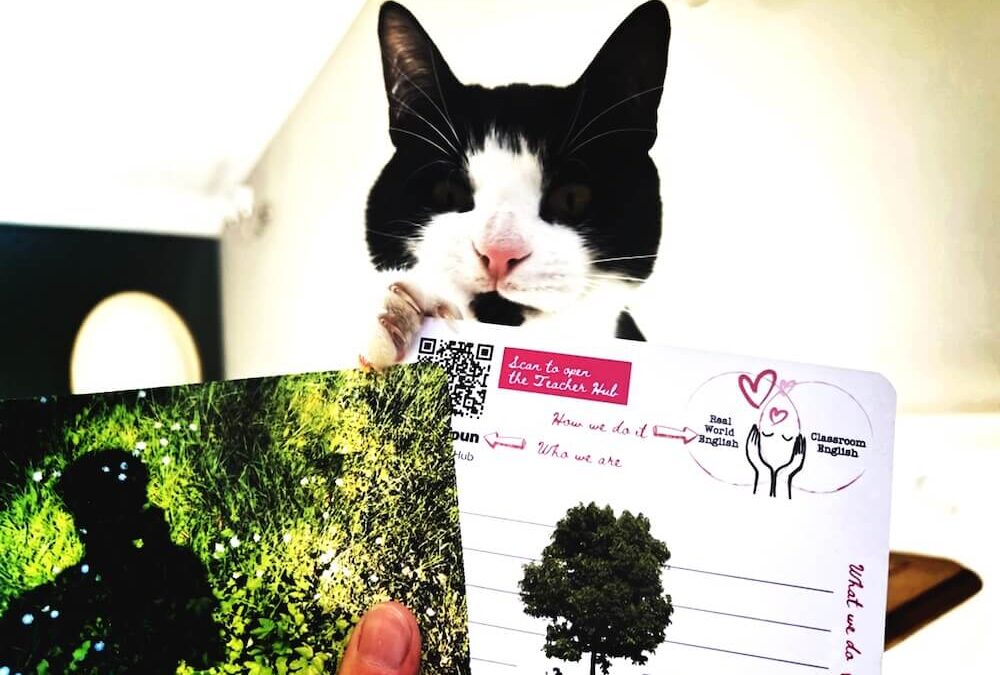 Scan to open
the Teacher Hub
How we do it
Who we are
Hub
Real
World
English
Classroom
English
What we do